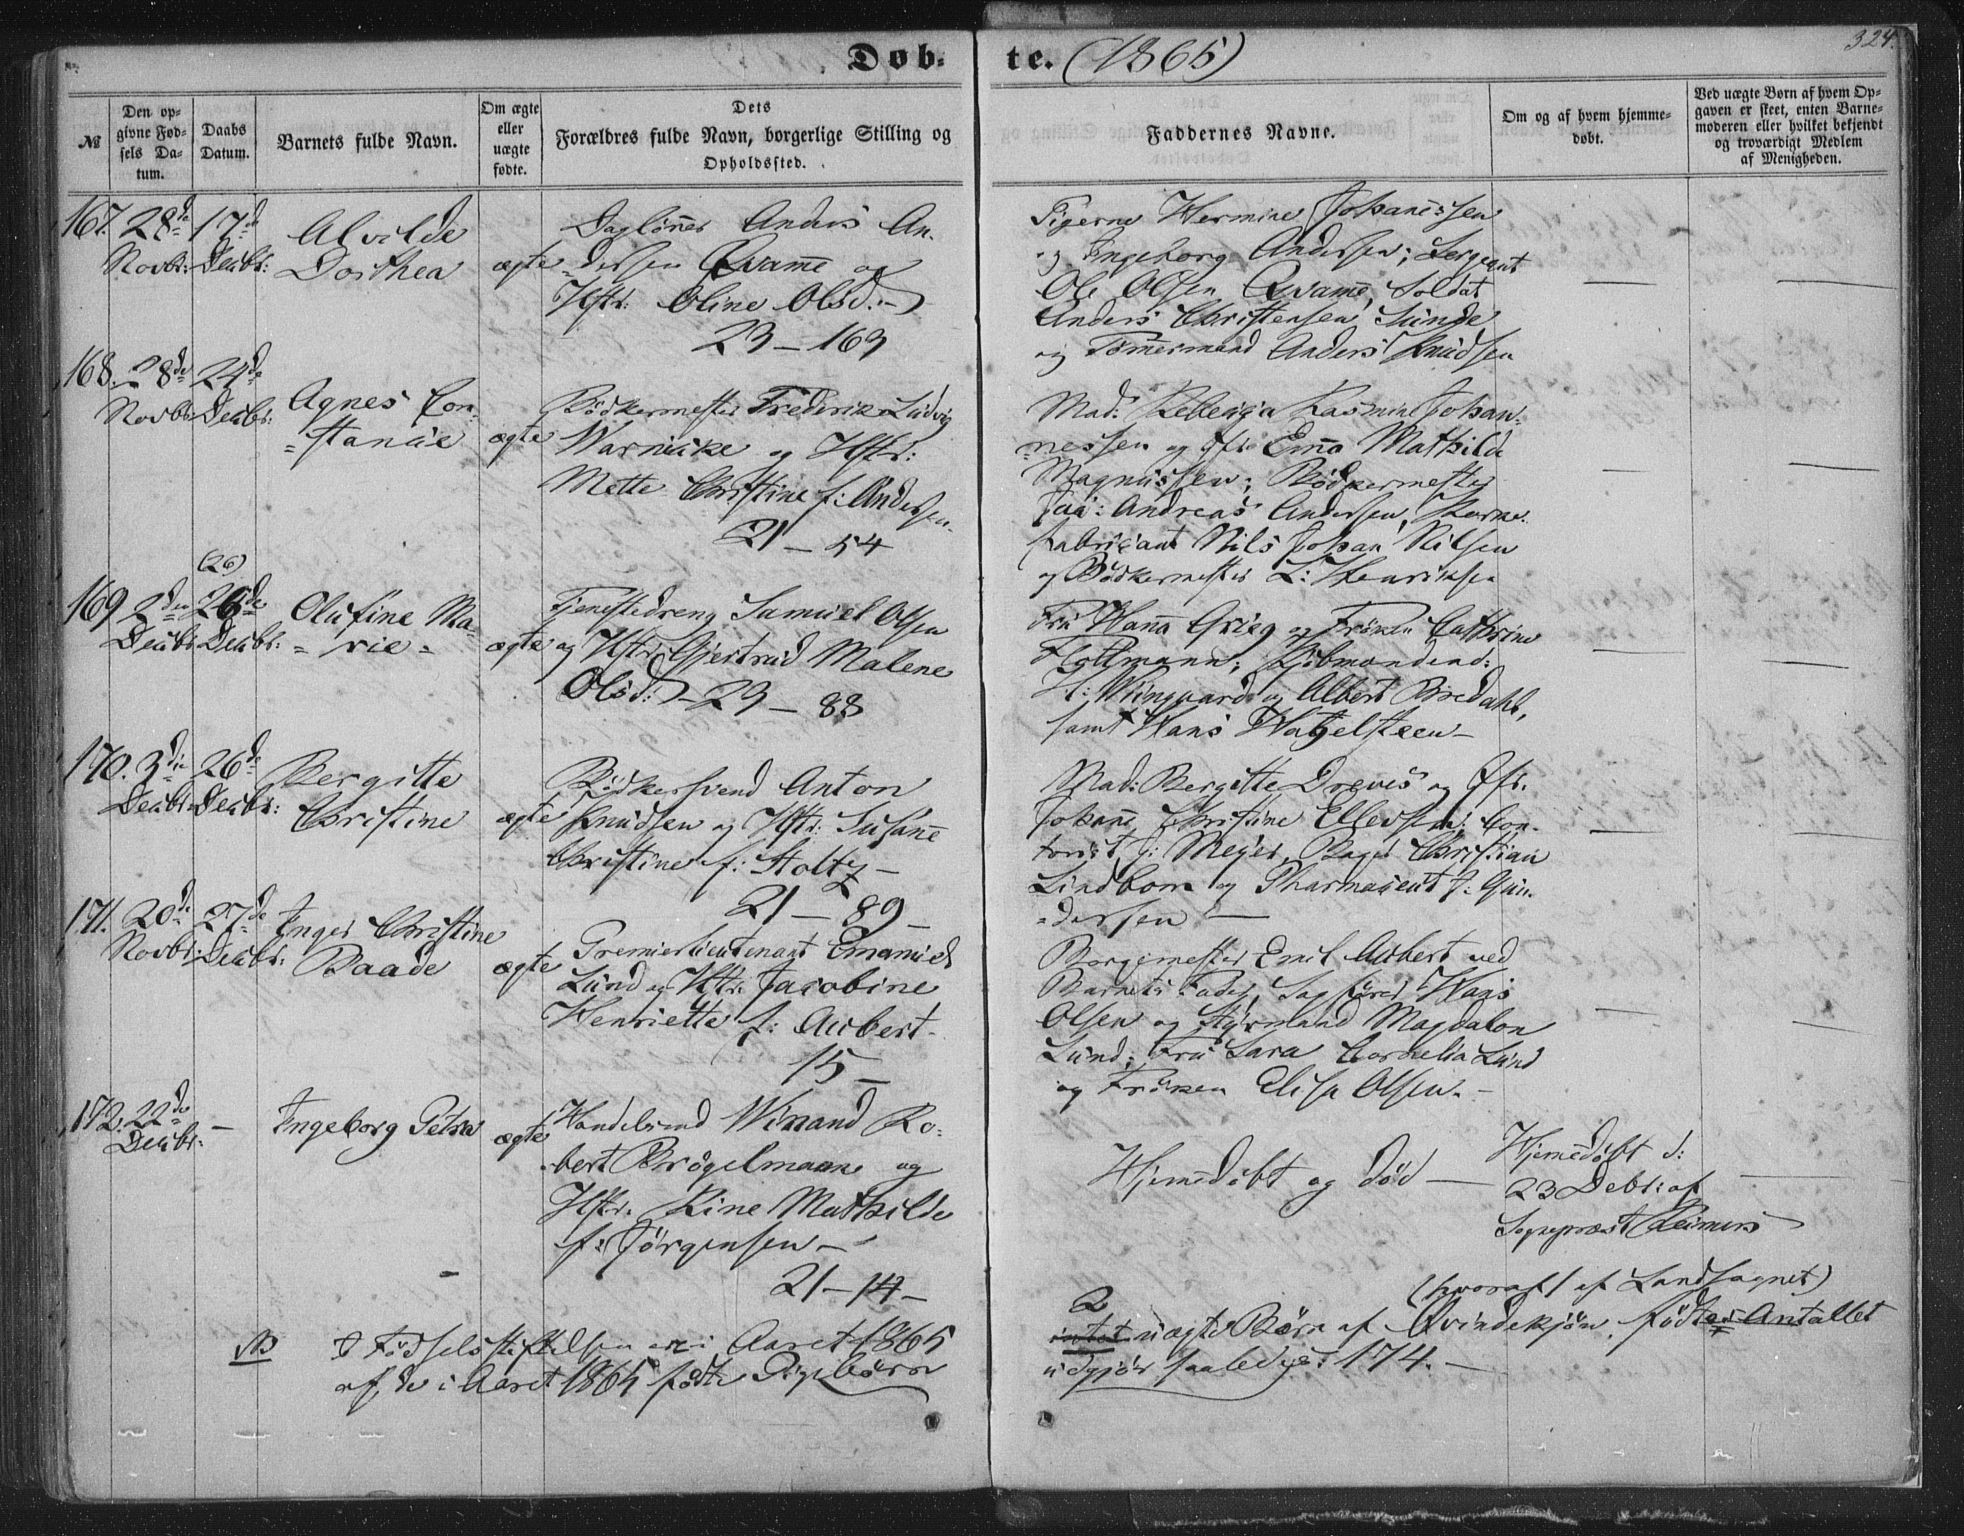 324.
Døb-
te. (1865)
№
Den op-
givne Fød-
sels Da-
tum.
Daabs
Datum.
Barnets fulde Navn.
Om ægte
eller
uægte
fødte.
Dets
Forældres fulde Navn, borgerlige Stilling og
Opholdssted.
Faddernes Navne.
Om og af hvem hjemme-
døbt.
Ved uægte Børn af hvem Op-
gaven er skeet, enten Barne-
moderen eller hvilket bekjendt
og troværdigt Medlem
af Menigheden.
167. 28de 17de
Novbr: Decbr:
Alvilde
Dorthea
ægte
Daglönner Anders An-
dersen Qvamme og
Hstr: Oline Olsd:
23 - 163
Pigerne Hermine Johannessen
og Ingeborg Andersen; Sergeant
Ole Olsen Qvamme, Soldat
Anders Christensen Sunde
og Tömmermand Anders Knudsen
168. 28de 24de
Novbr: Decbr:
Agnes Con-
=stance
ægte
Bödkermester Frederik Ludvig
Warnecke og Hstr:
Mette Christine f: Andersen-
21 - 54
Mad: Rebecca Rasmine Johan-
=nessen og Jfr. Emma Mathilde
Magnussen; Bödkermester
Andreas Andersen,
fabricant Nils Johan Nilsen
og Bödkermester L: Henriksen
169 2den 26de
(26)
Decbr: Decbr:
Olufine Ma-
= rie =
ægte
Tjenestedreng Samuel Olsen
og Hstr: Gjertrud Malene
Olsd: - 23 - 88
Fru Hanna Grieg og Fröken Cathrine
Flottmann;
Wiingaard og Albert Bredahl,
samt Hans Hatzelsteen -
170. 3die 26de
Decbr: Decbr:
Bergitte
Christine
ægte
Bödkersvend Anton
Knudsen og Hstr: Susanne
Christine f: Stoltz -
21 - 89 -
Mad: Bergitte Drewes og Jfr.
Johanne Christine Ellevsen; Con-
torist J: Meyer, Bager Christian
Lindbom og Pharmaceut J: Gun-
=dersen -
171. 20de 27de
Novbr: Decbr:
Inger Christine
Baade
ægte
Premierlieutenant Emanuel
Lund og Hstr: Jacobine
Henriette f: Aubert-
15 -
Borgemester Emil Aubert ved
Barnets Fader, Sagförer Hans
Olsen og Styrmand Magdalon
Lund; Fru Sara Cornelia Lund
og Fröken Elisa Olsen. -
172. 22de -
Decbr:
Ingeborg Petra
ægte
Handelsmd Winand Ro-
bert Brögelmann og
Hstr. Line Mathilde
f: Jörgensen -
21 - 14 -
Hjemmedöbt og död -
Hjemmedöbt d:
23 Decbr: af
Sognepræst Reimers
NB
I Födselsstiftelsen er i Aaret 1865
af de i Aaret 1865 fødte Pigebørn
2 (hvoraf 1 af Landsognet)
intet uægte Børn af Qvindekjön, födte, Antallet
udgjør saaledes: 174. -